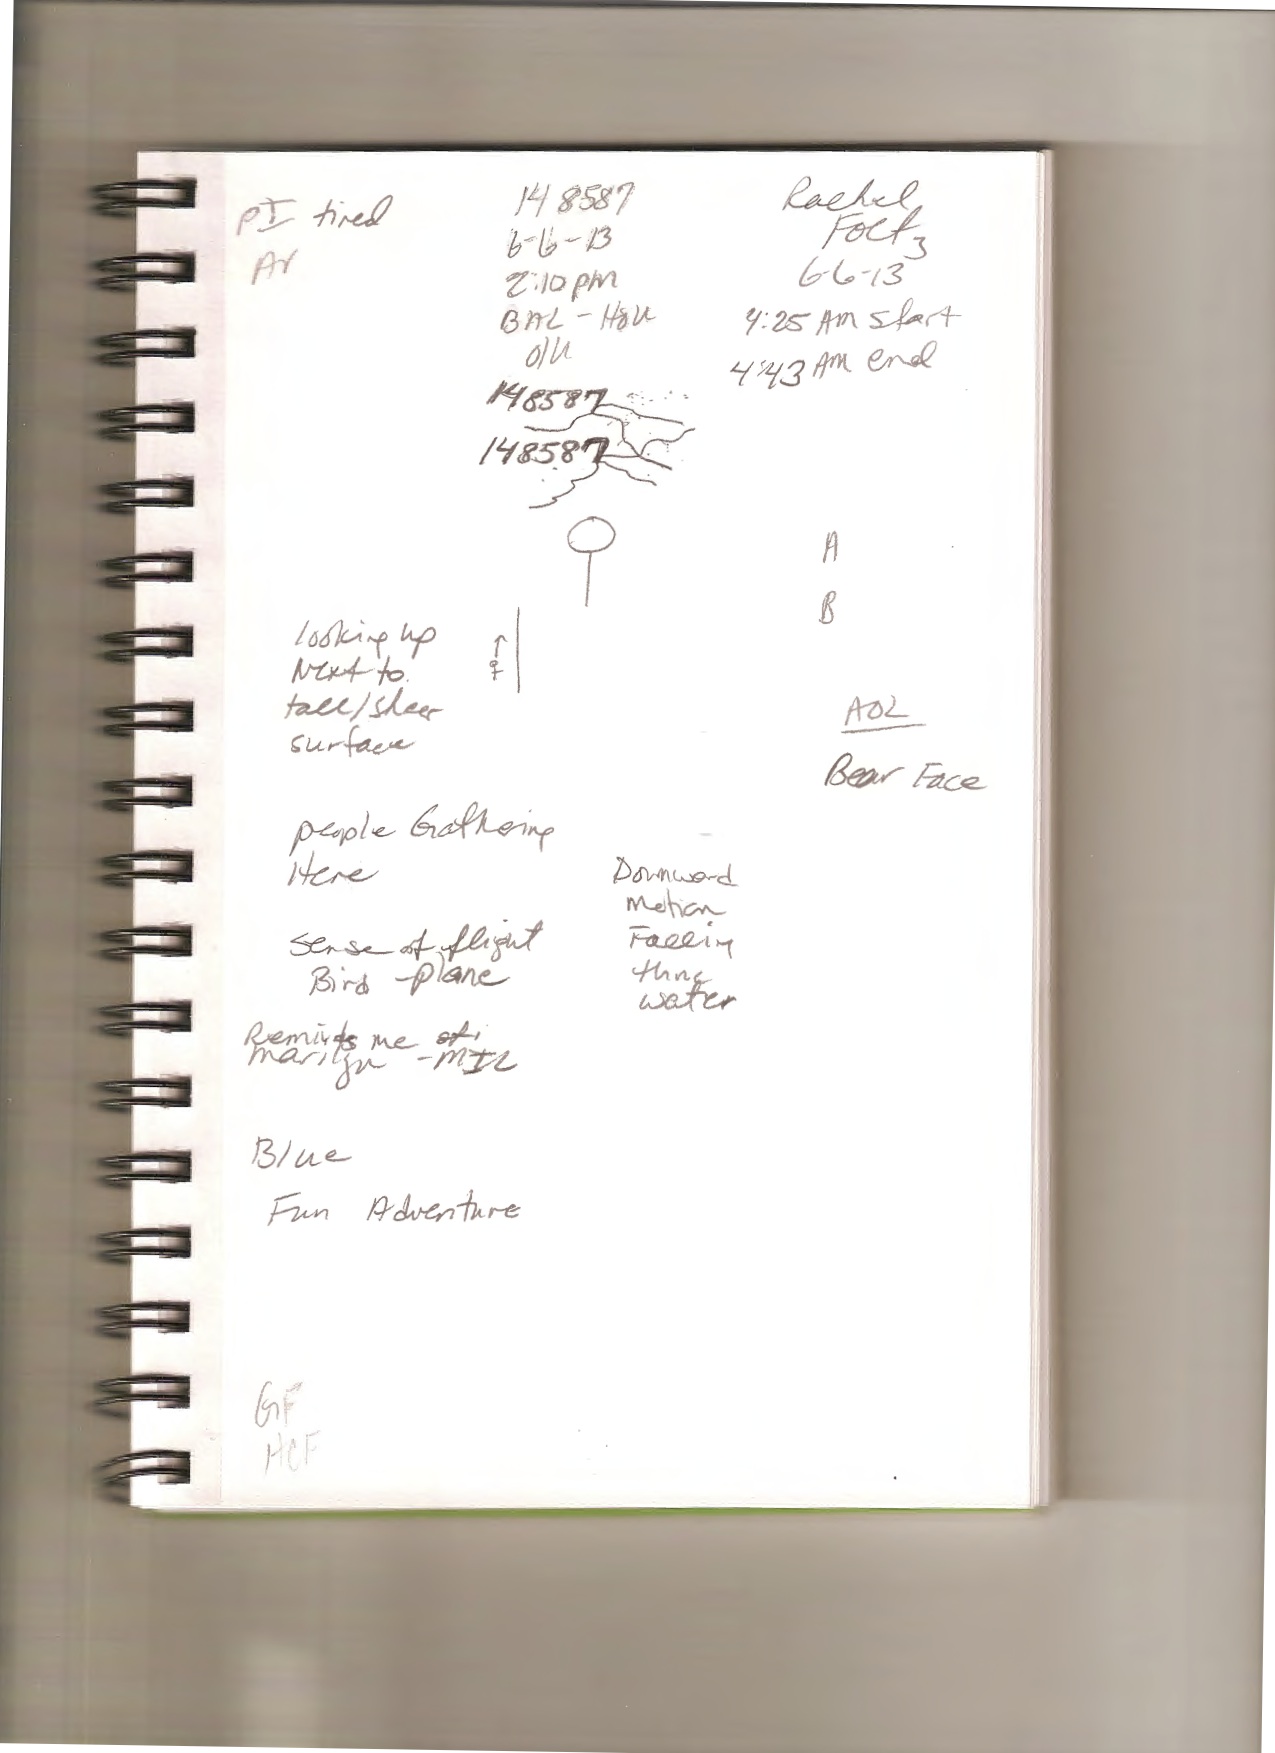 PI tired
AV
148587
6-6-13
2:10 pm
BAL - Hou
O/U
Rachel
Foltz
6-6-13
4:25 AM start
4:43 AM end
148587
148587
A
B
looking up
Next to
tall/sheer
surface
AOL
Bear Face
people Gathering
Here
Downward
Motion
Falling
thru
water
sense of flight
Bird - plane
Reminds me of
Marilyn - MIL
Blue
Fun Adventure
GF
HCF